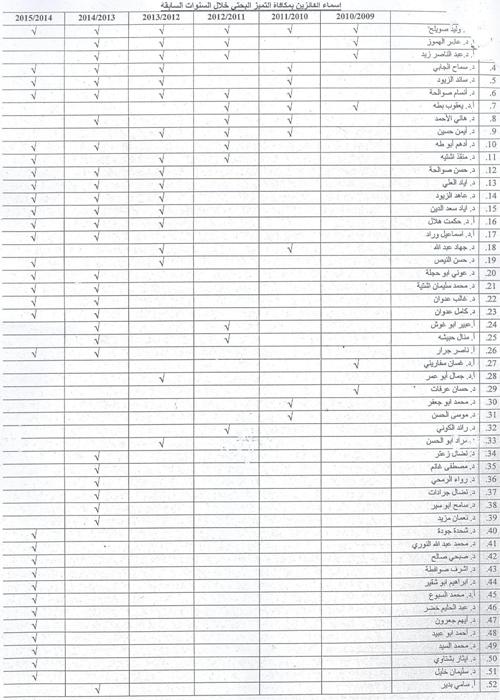 اسماء الفائزين بمكافأة التميز البحثي خلال السنوات السابقة
2010/2009 2011/2010 2012/2011 2013/2012 2014/2013 2015/2014
وليد صويلح √ √ √ √ √ √
د. عامر الهموز √ √ √ √ √
د. عبد الناصر زيد √ √ √ √ √
4. د. سماح الجابي √ √ √ √
5. د. سائد الزيود √ √ √ √
6. د. أنسام صوالحة √ √ √ √ √
7. أ.د. يعقوب بطه √ √ √
8. د. هاني الأحمد √ √ √
9. د. أيمن حسين √ √ √
10. د. أدهم أبو طه √ √ √
11. د. منقذ اشتيه √ √ √
12. د. حسن صوالحة √ √ √
13. د. اياد العلي √ √ √
14. د. عاهد الزيود √ √ √
15. د. اياد سعد الدين √ √ √
16. أ.د. حكمت هلال √ √ √
17. أ.د. اسماعيل وراد √ √
18. د. جهاد عبد الله √ √
19. د. حسن التيص √ √
20. د. عوني ابو حجلة √ √
21. د. محمد سليمان اشتية √ √
22. د. غالب عدوان √ √
23. د. كامل عدوان √ √
24. أ. عبير ابو غوش √ √
25. أ. منال حبيشه √ √
26. أ. ناصر جرار √ √
27. أ.د. غسان سفاريني √
28. أ.د. جمال أبو عمر √
29. د. حسان عرفات √
30. د. محمد ابو جعفر √
31. د. موسى الحسن √
32. د. رائد الكوني √
33. مراد أبو الحسن √
34. د. نضال زعتر √
35. د. مصطفى غانم √
36. د. رواء الرمحي √
37. د. نضال جرادات √
38. د. سامح ابو سير √
39. د. نعمان مزيد √
40. د. شحدة جودة √
41. د. محمد عبد الله النوري √
42. د. صبحي صالح √
43. د. اشرف صوافطة √
44. د. ابراهيم ابو شقير √
45. أ.د. محمد السبوع √
46. د. عبد الحليم خضر √
47. د. أيهم جعرون √
48. د. أحمد ابو عبيد √
49. د. محمد السيد √
50. د. ايثار بشتاوي √
51. د. سليمان خليل √
52. أ. سامي بدير √